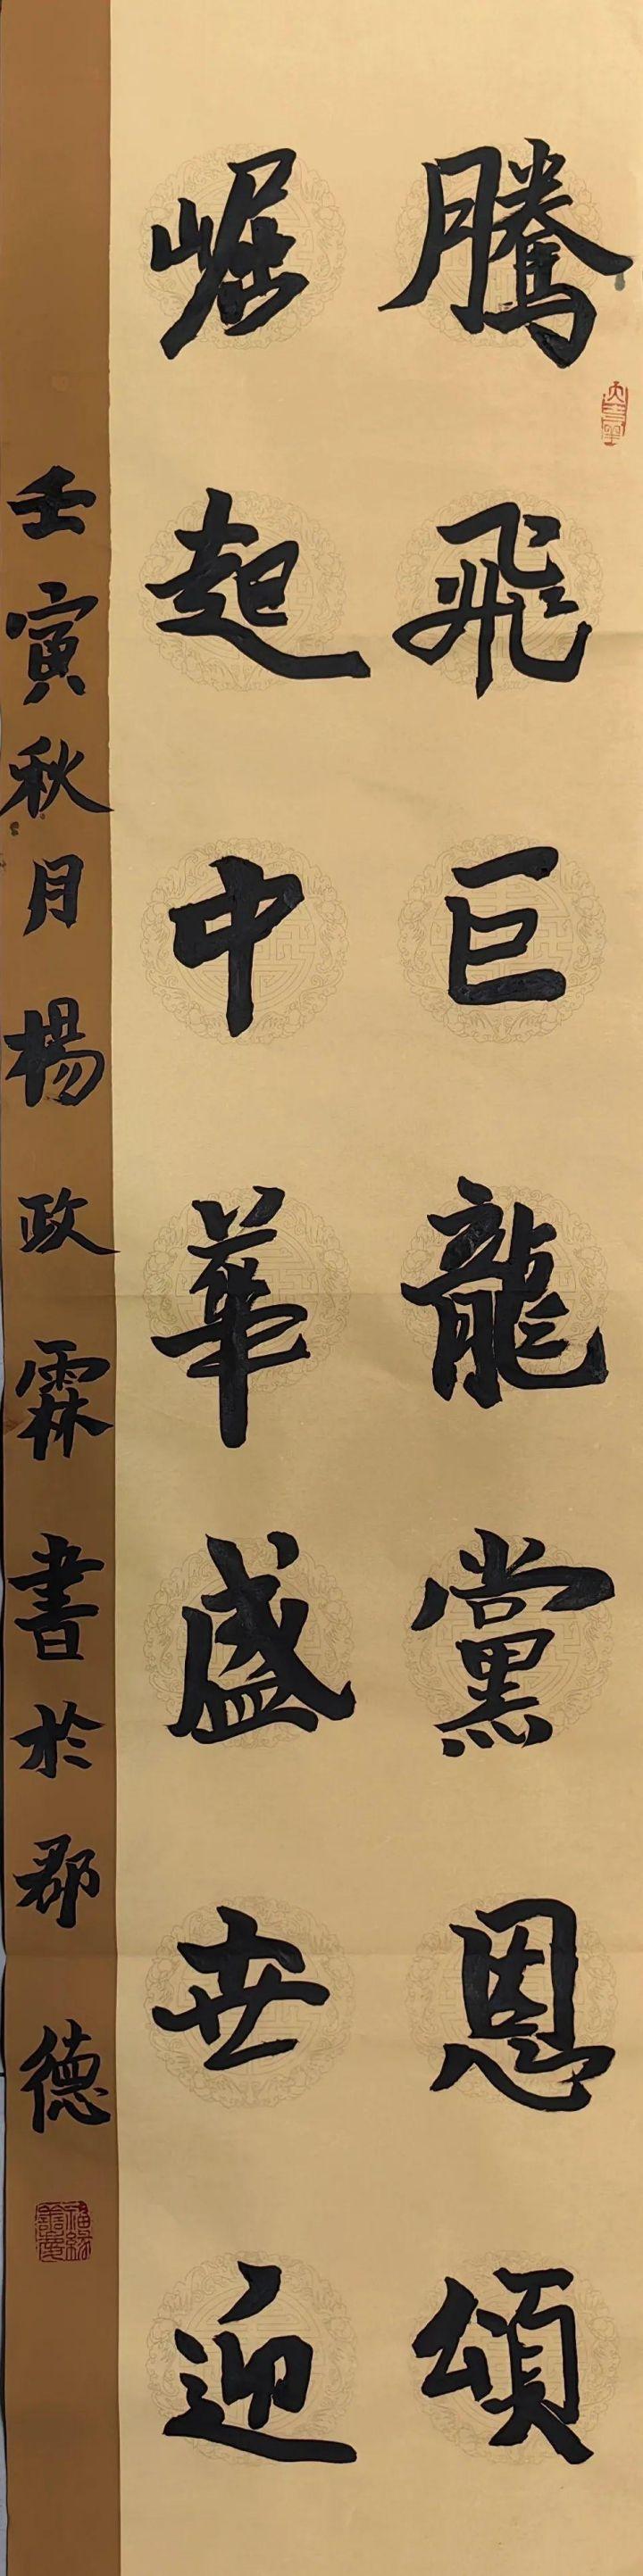 騰飛巨龍黨恩頌
崛起中華盛世迎
壬寅秋月楊政霖書於郡德